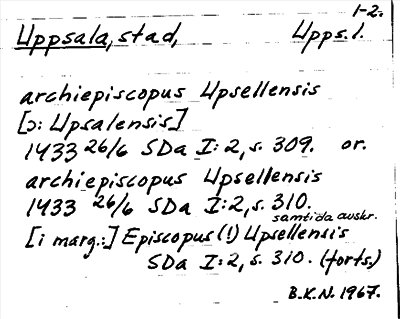 1-2.
Uppsala, stad, Upps. l.
archiepiscopus Upsellensis
[ɔ: Upsalensis]
1433 26/6 SDa I:2, s. 309. or.
archiepiscopus Upsellensis
1433 26/6 SDa I:2, s. 310.
samtida avskr.
[i marg.:] Episcopus (!) Upsellensis
SDa I:2, s. 310. (forts.)
B.K.N. 1967.